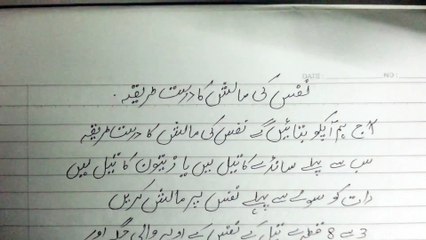 DATE: NO:
نفس کی مالش کا درست طریقہ۔
آج ہم آپکو بتائیں گے نفس کی مالش کا درست طریقہ
سب سے پہلے سانڈے کا تیل لیں یا زیتون کا تیل لیں
رات کو سونے سے پہلے نفس پر مالش کریں
3 سے 8 قطرے تیل کے نفس کے اوپر والی جگہ اور